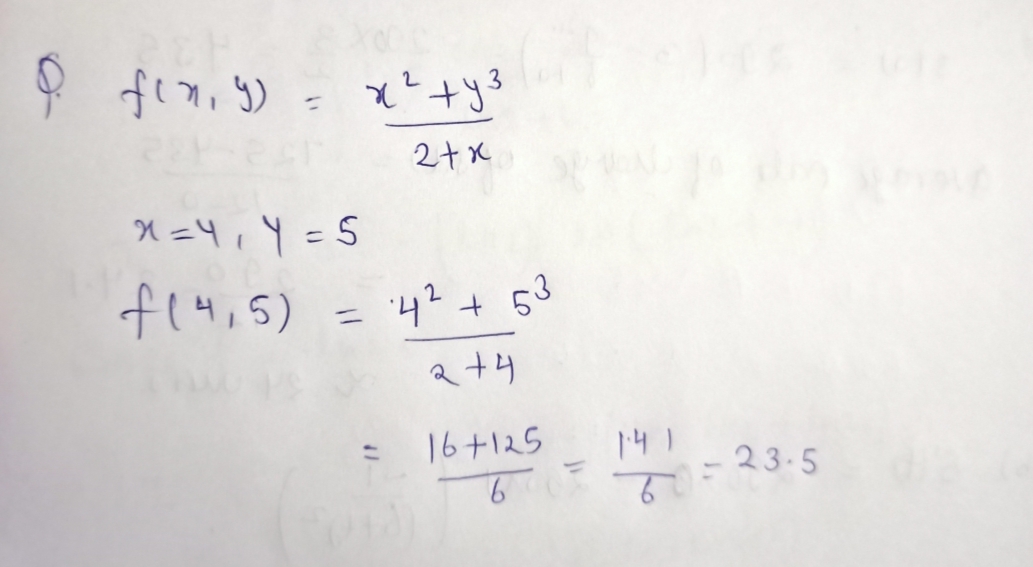 Q. f(x, y) = x² + y³ / 2 + x
x = 4, y = 5
f(4, 5) = 4² + 5³ / 2 + 4
= 16 + 125 / 6 = 141 / 6 = 23.5